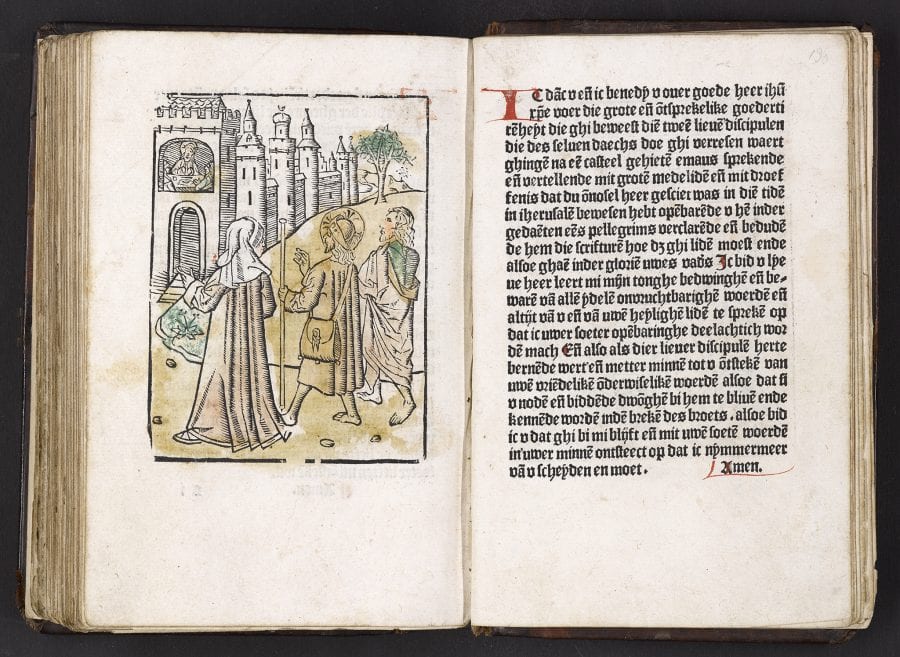 IC dāc v eñ ic benedȳ v ouer goede heer ihū
xp̄e voer die grote eñ ōtsprekelike goederti
rēheyt die ghi beweest diē tweē lieuē discipulen
die des seluen daechs doe ghi verresen waert
ghingē na eē casteel gehietē emaus sprekende
eñ vertellende mit grotē medelidē eñ mit droef
fenis dat du ōnosel heer gesciet was in diē tidē
in iherusalē bewesen hebt opēbarēde v hē inder
gedaēten eēs pellegrims verclarēde eñ bedudē
de hem die scripturē hoe dʒ ghi lidē moest ende
alsoe ghaē inder gloriē uwes vad's Ic bid v lye
ue heer leert mi mijn tonghe bedwinghē eñ be-
warē vā allē ydelē onvruchtbarighē woerdē eñ
altijt vā v eñ vā uwē heylighē lidē te sprekē op
dat ic uwer soeter opēbaringhe deelachtich wor
dē mach Eñ also als dier lieuer discipulē herte
bernēde wert eñ metter minnē tot v ōtstekē van
uwē vriēdelikē ōderwiselikē woerdē alsoe dat si
v nodē eñ biddēde dwōghē bi hem te bliuē ende
kennēde wordē indē brekē des broets. alsoe bid
ic v dat ghi bi mi blijft eñ mit uwē soetē woerdē
in uwer minnē ontsteect op dat ic nȳmmermeer
vā v scheyden en moet. Amen.